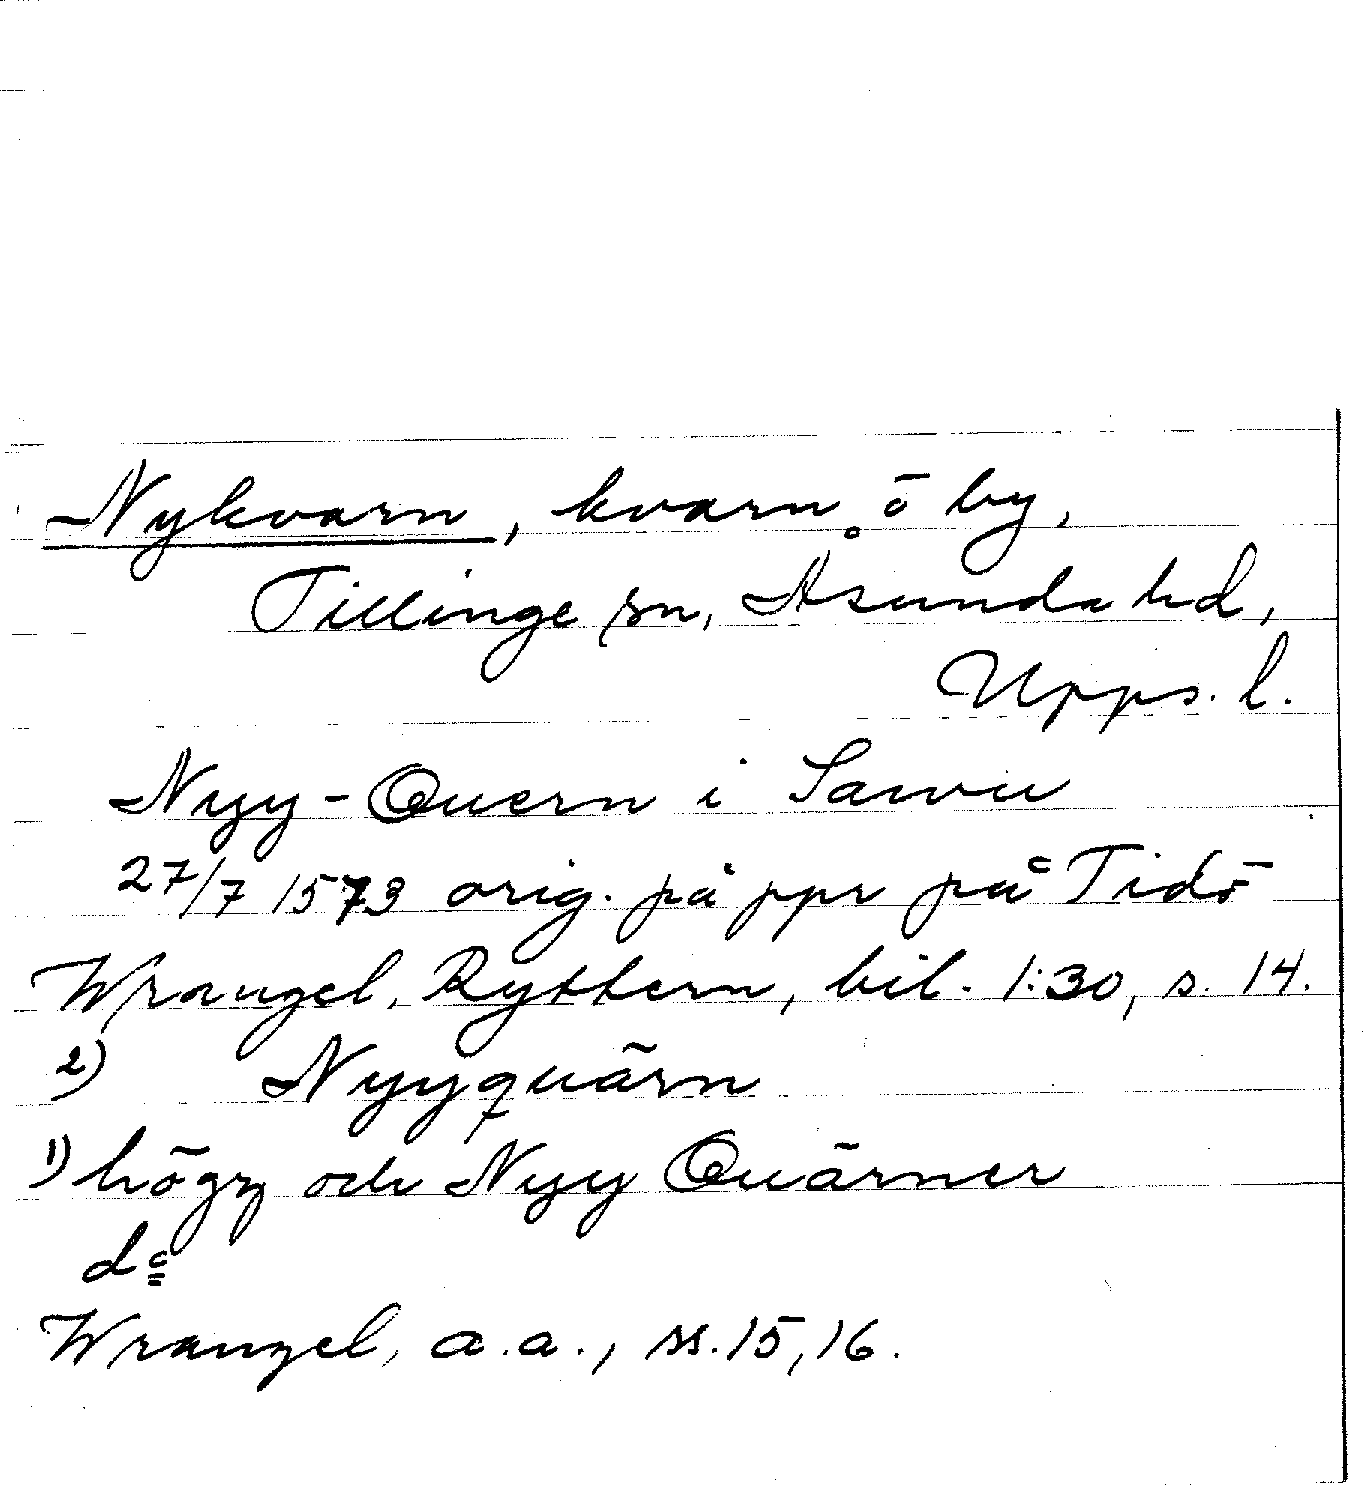 Nykvarn, kvarn ō by,
Tillinge sn, Åsunda hd,
Upps. l.
Nyy-Quern i Sawu
27/7 1573 orig. på ppr på Tidö
Wrangel, Ryttern, bil. 1:30, s. 14.
2) Nyyquärn
1) högx och Nyy Quärner
do
Wrangel, a.a., ss. 15, 16.